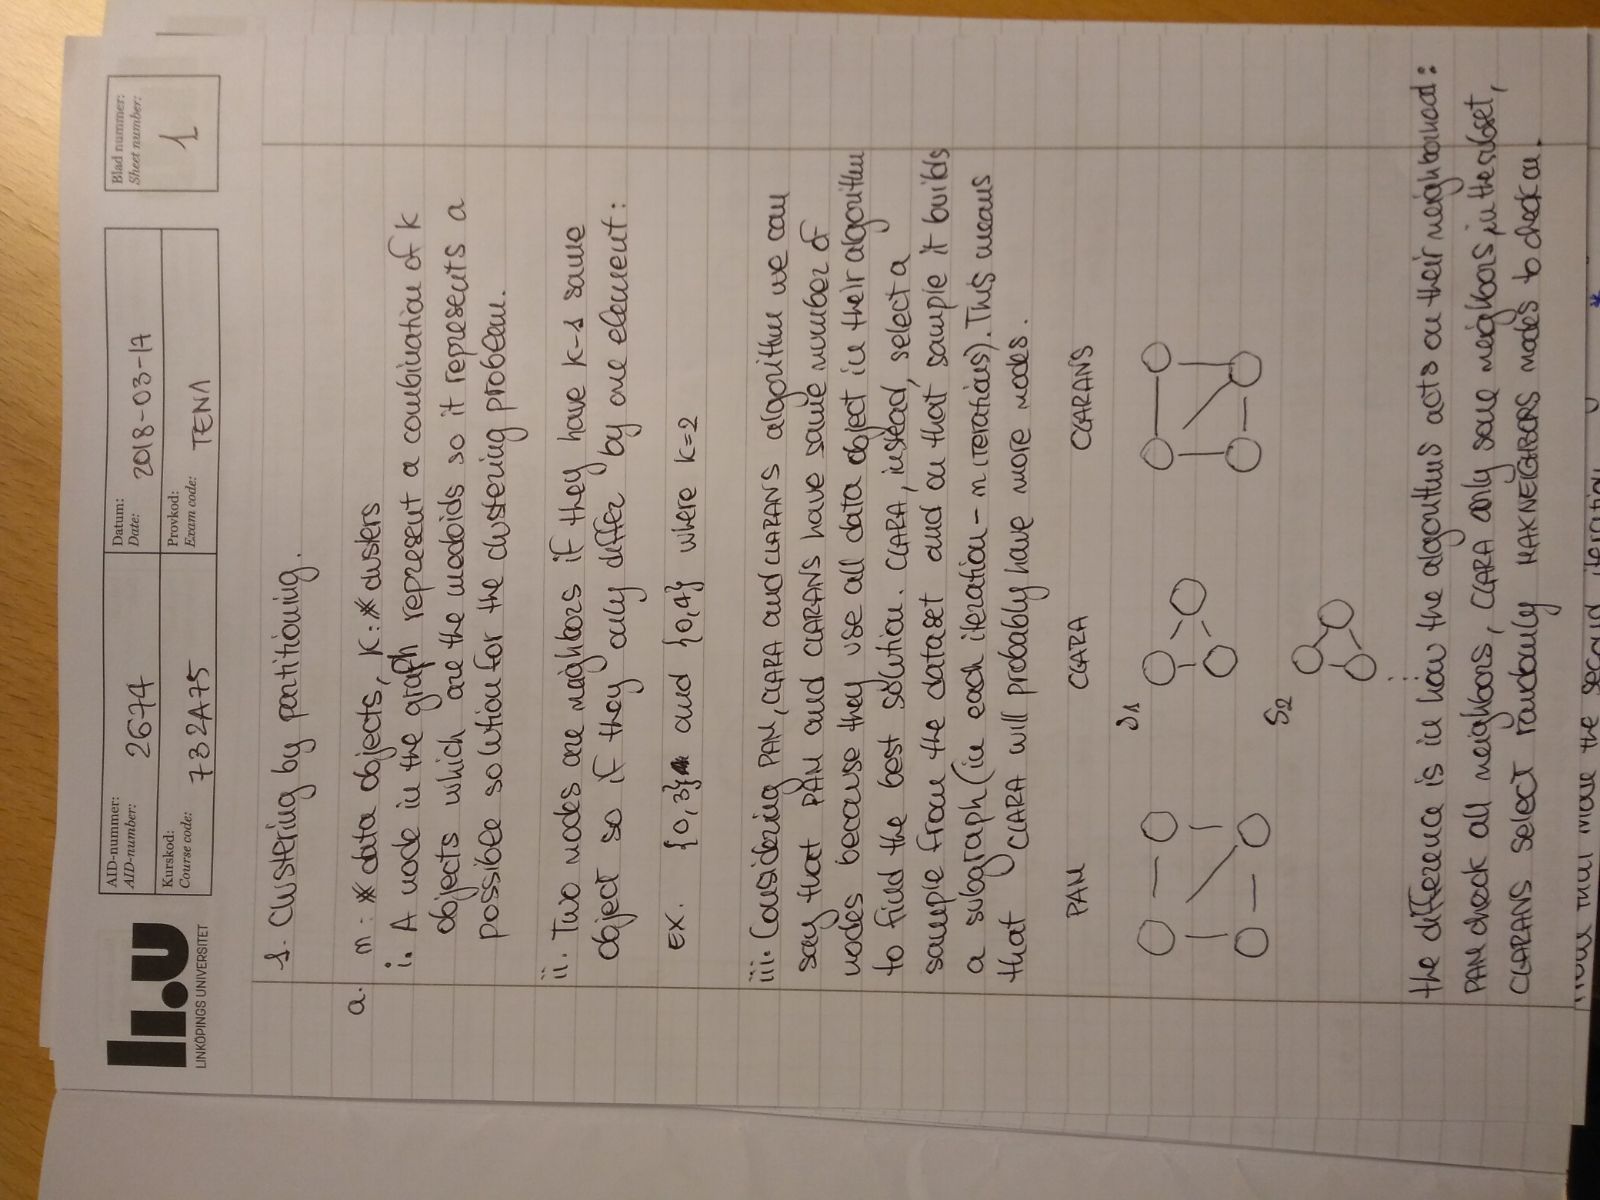 li.u
LINKÖPINGS UNIVERSITET
AID-nummer:
AID-number: 2674
Datum:
Date: 2018-03-17
Kurskod:
Course code: 732A75
Provkod:
Exam code: TEN1
Blad nummer:
Sheet number:
1
1. Clustering by partitioning.
a. m: # data objects, K: # clusters
i. A node in the graph represent a combination of K
objects which are the medoids so it represents a
possible solution for the clustering problem.
ii. Two nodes are neighbors if they have K-1 same
object so if they only differ by one element:
EX. {0,3} and {0,4} where K=2
iii. Considering PAM, CLARA and CLARANS algorithm we can
say that PAM and CLARANS have same number of
nodes because they use all data object in their algorithm
to find the best solution. CLARA, instead, select a
sample from the dataset and on that sample it builds
a subgraph (in each iteration - m iterations). This means
that CLARA will probably have more nodes.
PAM CLARA CLARANS
S1
S2
the difference is in how the algorithms acts on their neighborhood:
PAM check all neighbors, CLARA only some neighbors in the subset,
CLARANS select randomly MAXNEIGHBORS nodes to check on.
that made the second iteration